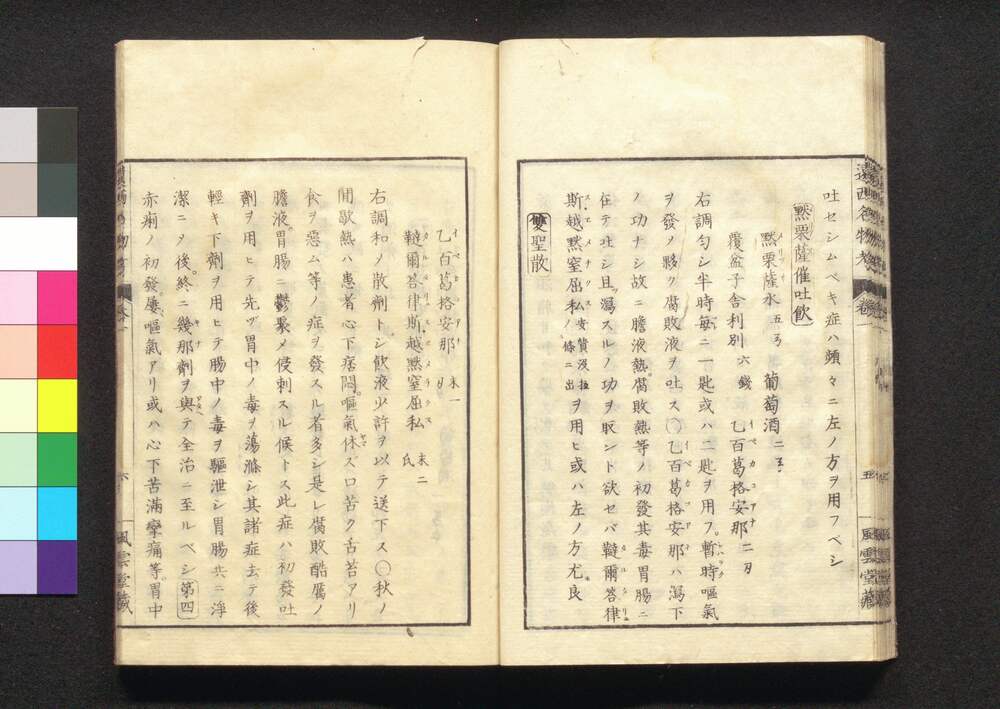 遠西名物考 卷一 五 風雲堂藏
吐セシムベキ症ハ頻々ニ左ノ方ヲ用フベシ
黙栗薩催吐飲
黙栗薩水 五ヲ 葡萄酒 二ヲ
覆盆子舎利別 六錢 乙百葛格安那 二刃
右調勻シ半時毎ニ一匙或ハ二匙ヲ用フ暫時嘔氣
ヲ發ノ夥ク腐敗液ヲ吐ス〇乙百葛格安那ハ瀉下
ノ功ナシ故ニ膽液熱腐敗熱等ノ初發其毒胃腸ニ
在テ吐シ且瀉スルノ功ヲ取ント欲セバ韃爾答律
斯越黙窒屈私ノ條ニ出ヲ用ヒ或ハ左ノ方尤良
雙聖散
乙百葛格安那 末一刃
韃爾答律斯越黙窒屈私 末二氏
右調和ノ散劑トシ飲液少許ヲ以テ送下ス〇秋ノ
間歇熱ハ患者心下痞悶嘔氣休ズロ苦ク舌苔アリ
食ヲ惡ム等ノ症ヲ發スル者多シ是レ腐敗酷厲ノ
膽液胃腸ニ鬱聚メ侵刺スル候トス此症ハ初發吐
劑ヲ用ヒテ先ヅ胃中ノ毒ヲ蕩滌シ其諸症去テ後
輕キ下劑ヲ用ヒテ腸中ノ毒ヲ驅泄シ胃腸共ニ淨
潔ニメ後終ニ幾那劑ヲ與テ全治ニ至ルベシ 第四
赤痢ノ初發屡嘔氣アリ或ハ心下苦滿攣痛等胃中
六 風雲堂藏